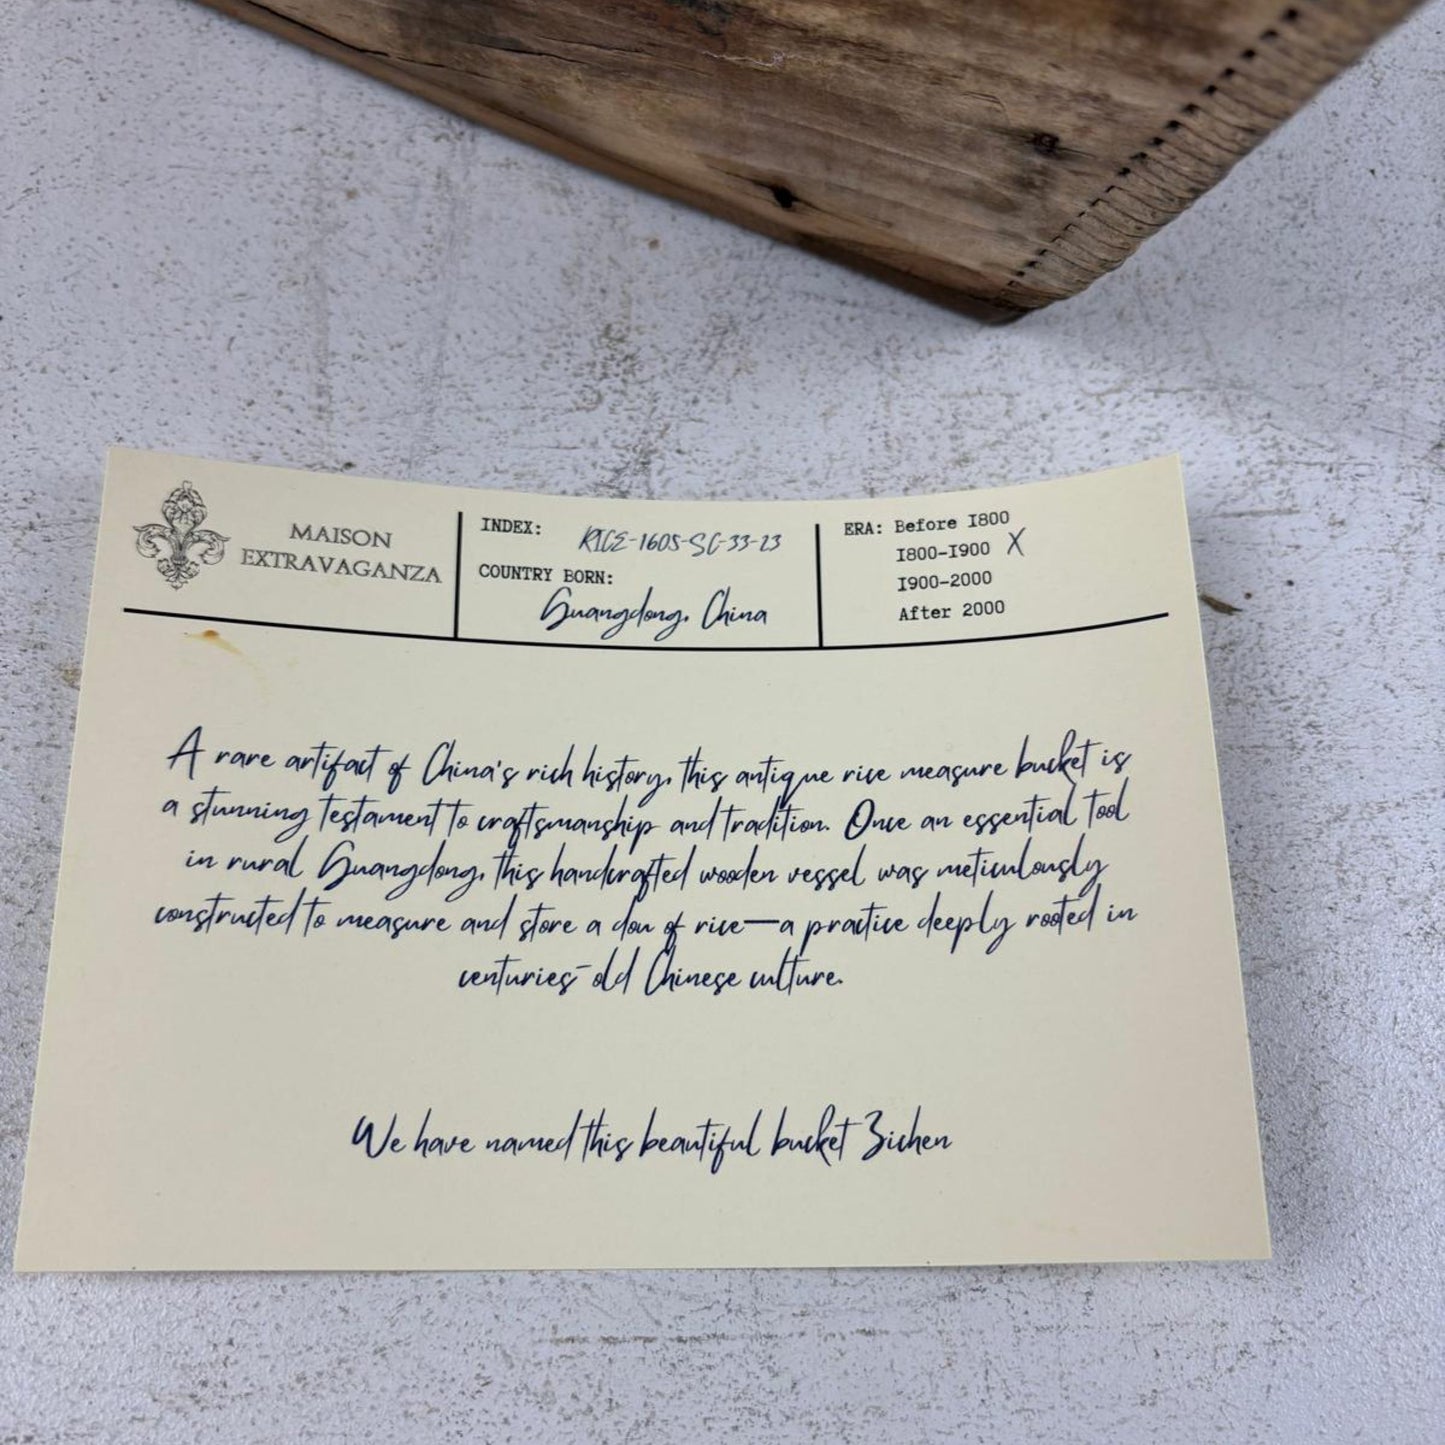 MAISON
EXTRAVAGANZA
INDEX: RICE-1605-SC-33-23
COUNTRY BORN:
Guangdong, China
ERA: Before 1800
1800-1900 X
1900-2000
After 2000
A rare artifact of China's rich history, this antique rice measure bucket is
a stunning testament to craftsmanship and tradition. Once an essential tool
in rural Guangdong, this handcrafted wooden vessel was meticulously
constructed to measure and store a dou of rice—a practice deeply rooted in
centuries-old Chinese culture.
We have named this beautiful bucket Zichen